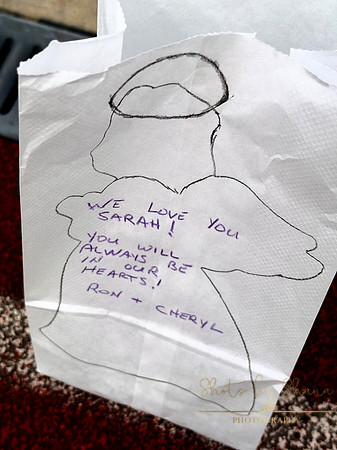 WE LOVE YOU
SARAH!
YOU WILL
ALWAYS BE
IN OUR
HEARTS!
RON + CHERYL
Shots by
PHOTOGRAPHY